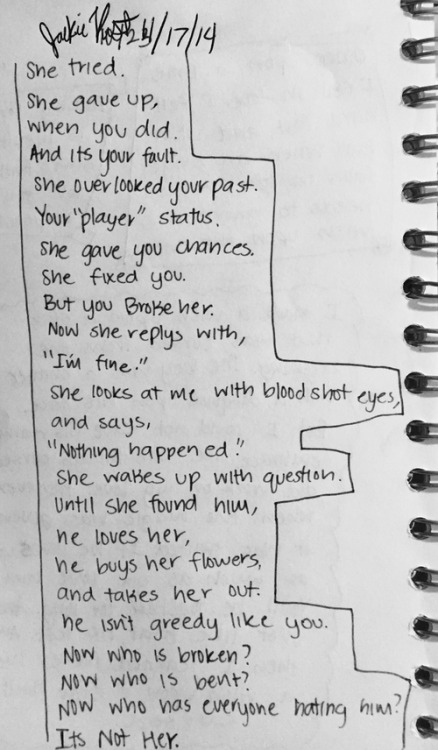 Jackie 3/17/14
She tried.
She gave up,
when you did.
And its your fault.
She overlooked your past.
Your "player" status.
She gave you chances.
She fixed you.
But you Broke her.
Now she replys with,
"I'm fine."
She looks at me with blood shot eyes,
and says,
"Nothing happened."
She wakes up with question.
Until she found him,
he loves her,
he buys her flowers,
and takes her out.
he isn't greedy like you.
Now who is broken?
Now who is bent?
Now who has everyone hating him?
Its Not Her.